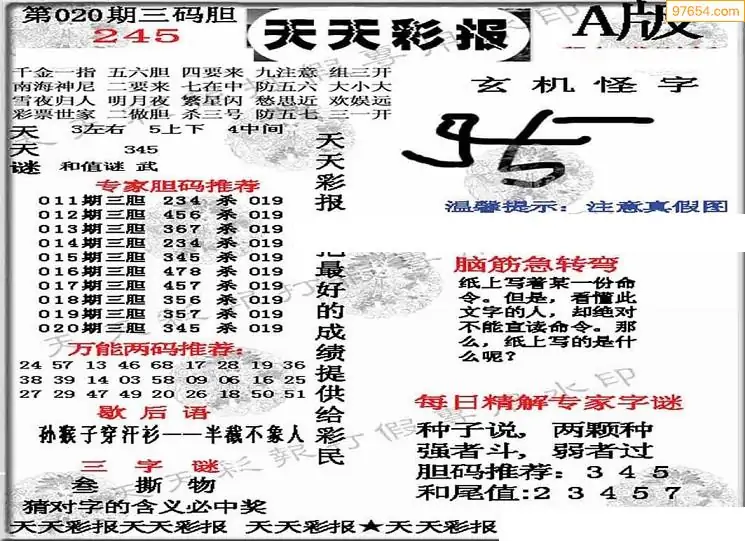 第020期三码胆
245
天天彩报
A版
97654.com
千金一指 五六胆 四要来 九注意 组三开
南海神尼 二要来 七在中 防五六 大小大
雪夜归人 明月夜 繁星闪 愁思近 欢娱远
彩票世家 二做胆 杀三号 防五七 三一开
天 3左右 5上下 4中间
天 345
谜 和值谜 武
专家胆码推荐
011期三胆 234 杀 019
012期三胆 456 杀 019
013期三胆 367 杀 019
014期三胆 234 杀 019
015期三胆 345 杀 019
016期三胆 478 杀 019
017期三胆 457 杀 019
018期三胆 356 杀 019
019期三胆 357 杀 019
020期三胆 345 杀 019
万能两码推荐:
24 57 13 46 68 17 28 19 36
38 39 14 03 58 09 06 16 25
27 29 47 49 20 26 18 50 51
歇后语
孙猴子穿汗衫——半截不象人
三字谜
叁 撕 物
猜对字的含义必中奖
天天彩报
把最好的成绩提供给彩民
玄机怪字
温馨提示:注意真假图
脑筋急转弯
纸上写着某一份命
令。但是,看懂此
文字的人,却绝对
不能宣读命令。那
么,纸上写的是什
么呢?
每日精解专家字谜
种子说,两颗种
强者斗,弱者过
胆码推荐:345
和尾值:23457
天天彩报天天彩报 天天彩报★天天彩报